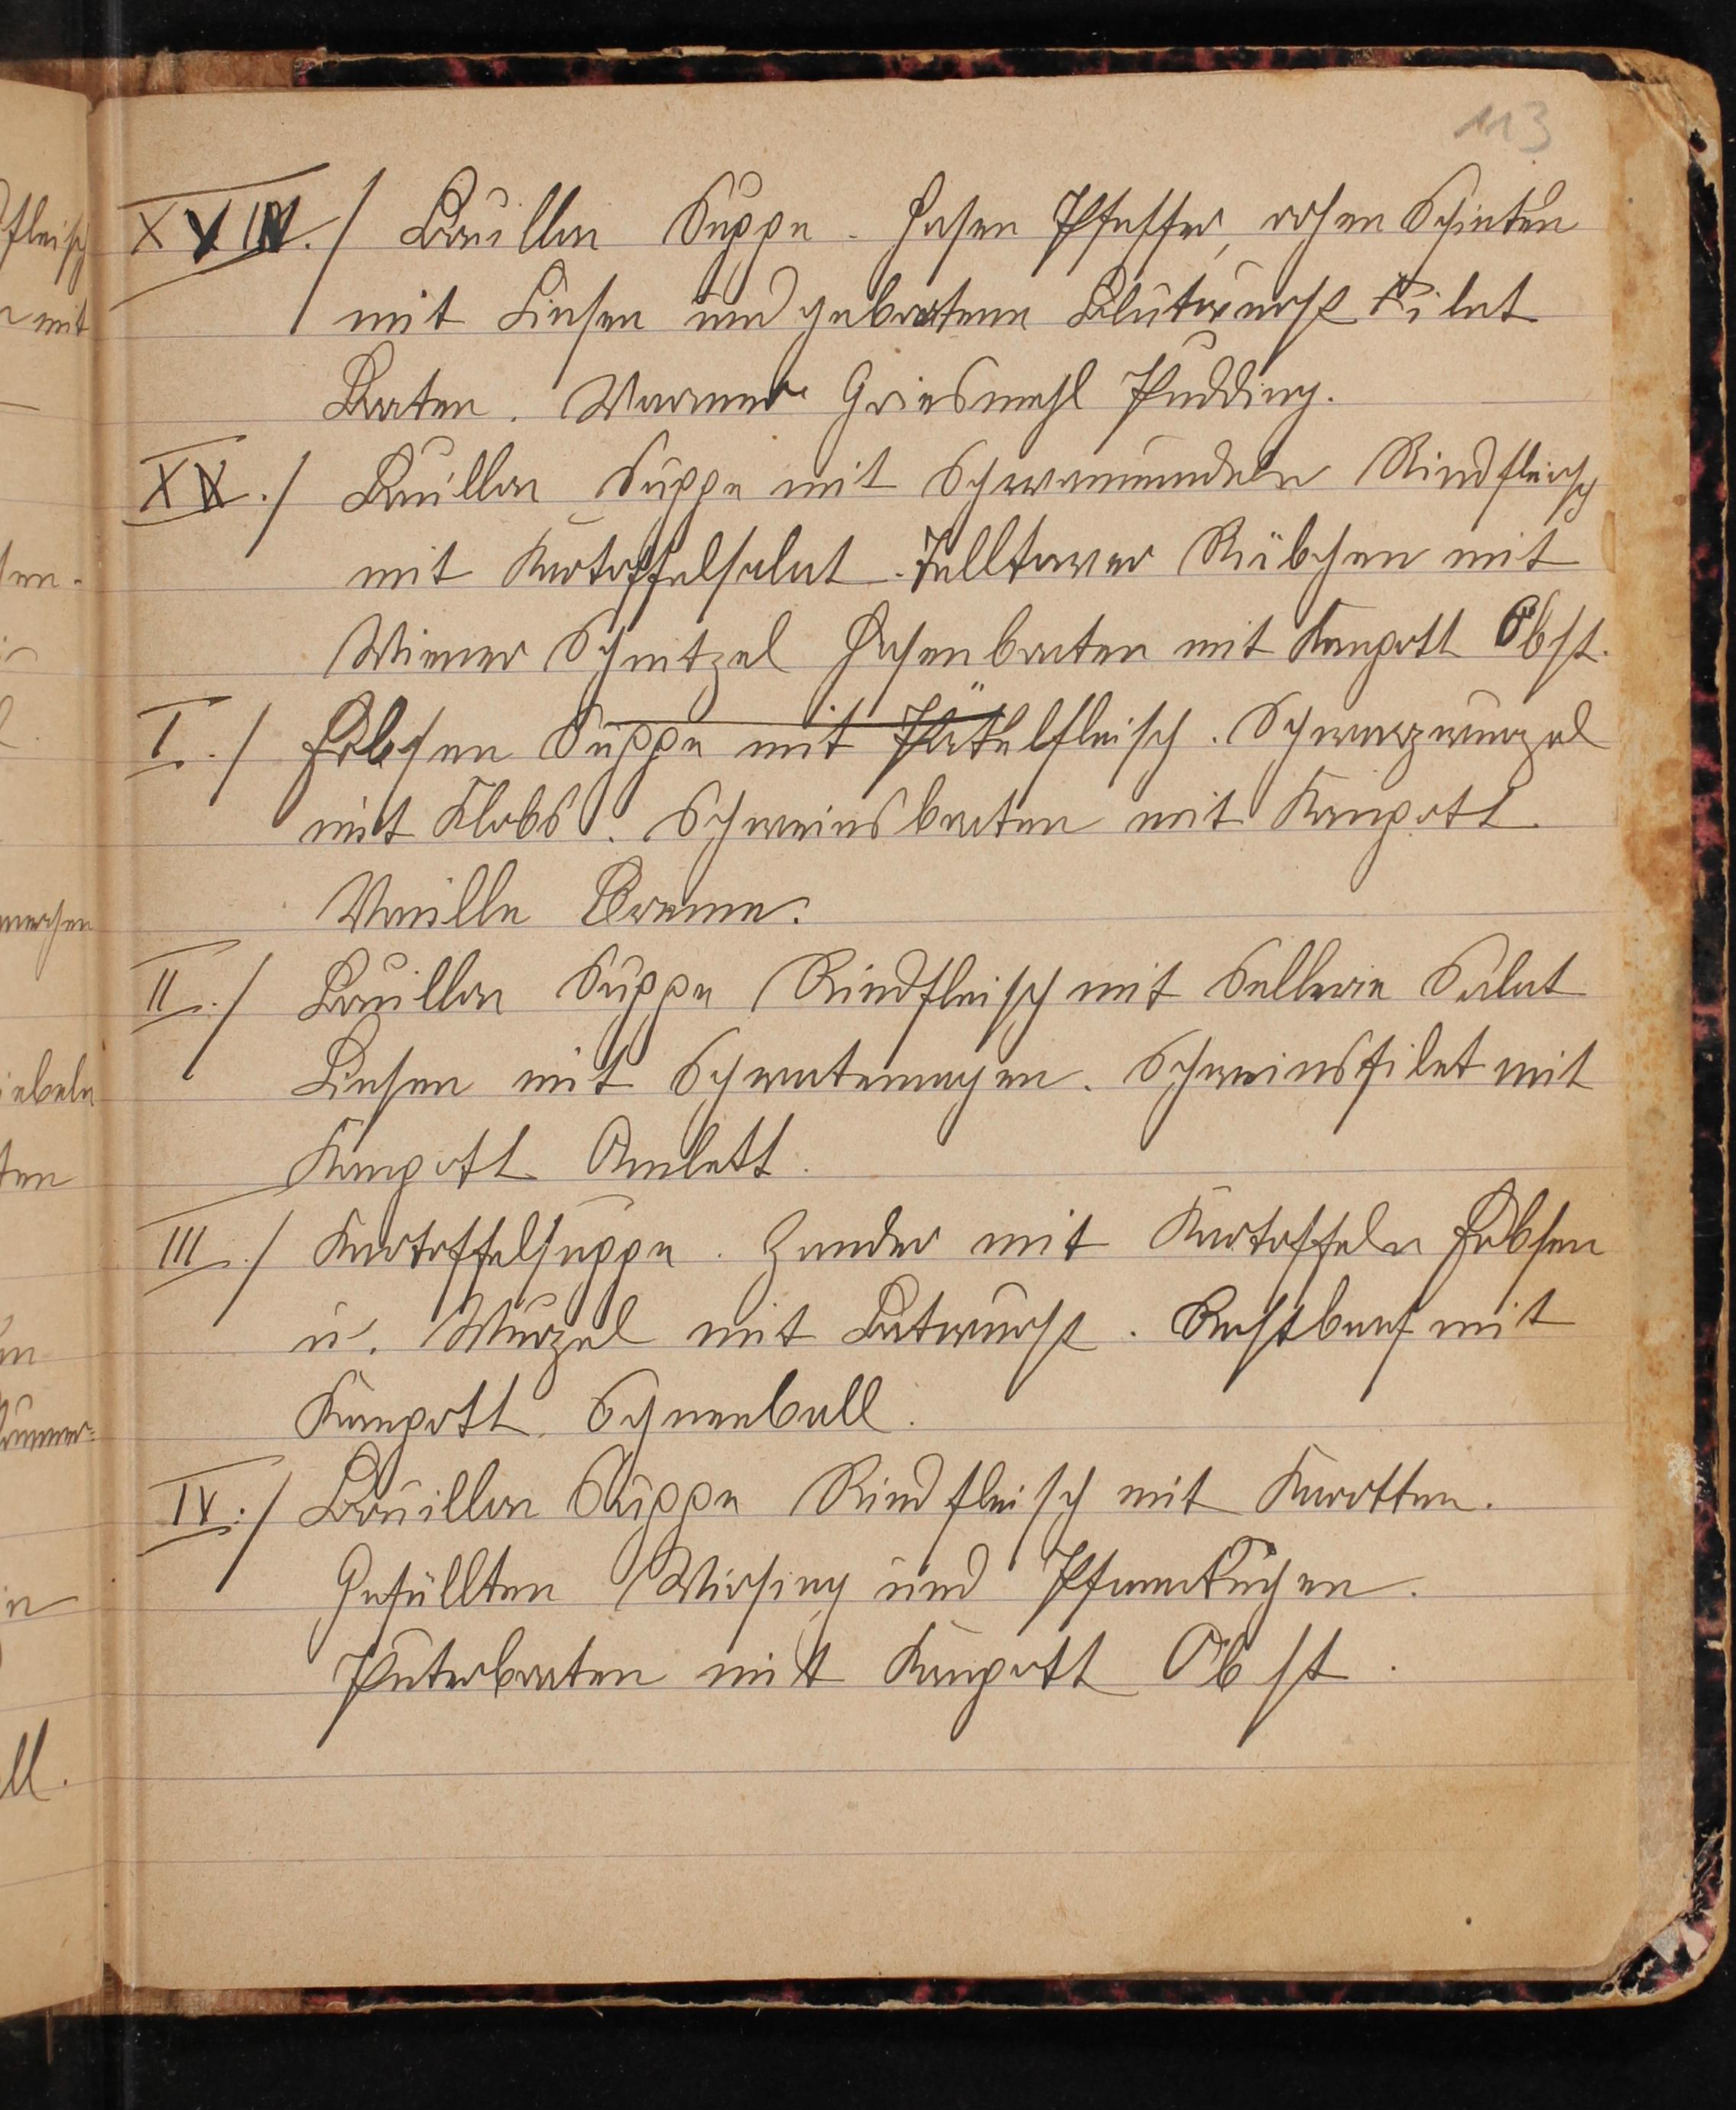 113
XVIII./ Bouillon Suppe. Hasen Pfeffer, rohen Schinken
mit Linsen und gebratene Blutwurst Filet
Braten. Warmer Griesmehl Pudding.
XX./ Bouillon Suppe mit Schwammnudeln Rindfleisch
mit Kartoffelsalat. Telltower Rübchen mit
Wiener Schnitzel Hasenbraten mit Kompott Obst.
I./ Erbsen Suppe mit Pökelfleisch. Schwarzwurzel
mit Klobs. Schweinsbraten mit Kompott.
Vanille Creme.
II./ Bouillon Suppe Rindfleisch mit Sellerie Salat
Linsen mit Schwatemagen. Schweinsfilet mit
Kompott Omlett.
III./ Kartoffelsuppe. Zander mit Kartoffeln Erbsen
u. Wurzel mit Bratwurst. Rostbeaf mit
Kompott. Schneeball.
IV./ Bouillon Suppe Rindfleisch mit Karotten.
Gefüllten Wirsing und Pfannkuchen.
Puterbraten mit Kompott Obst.